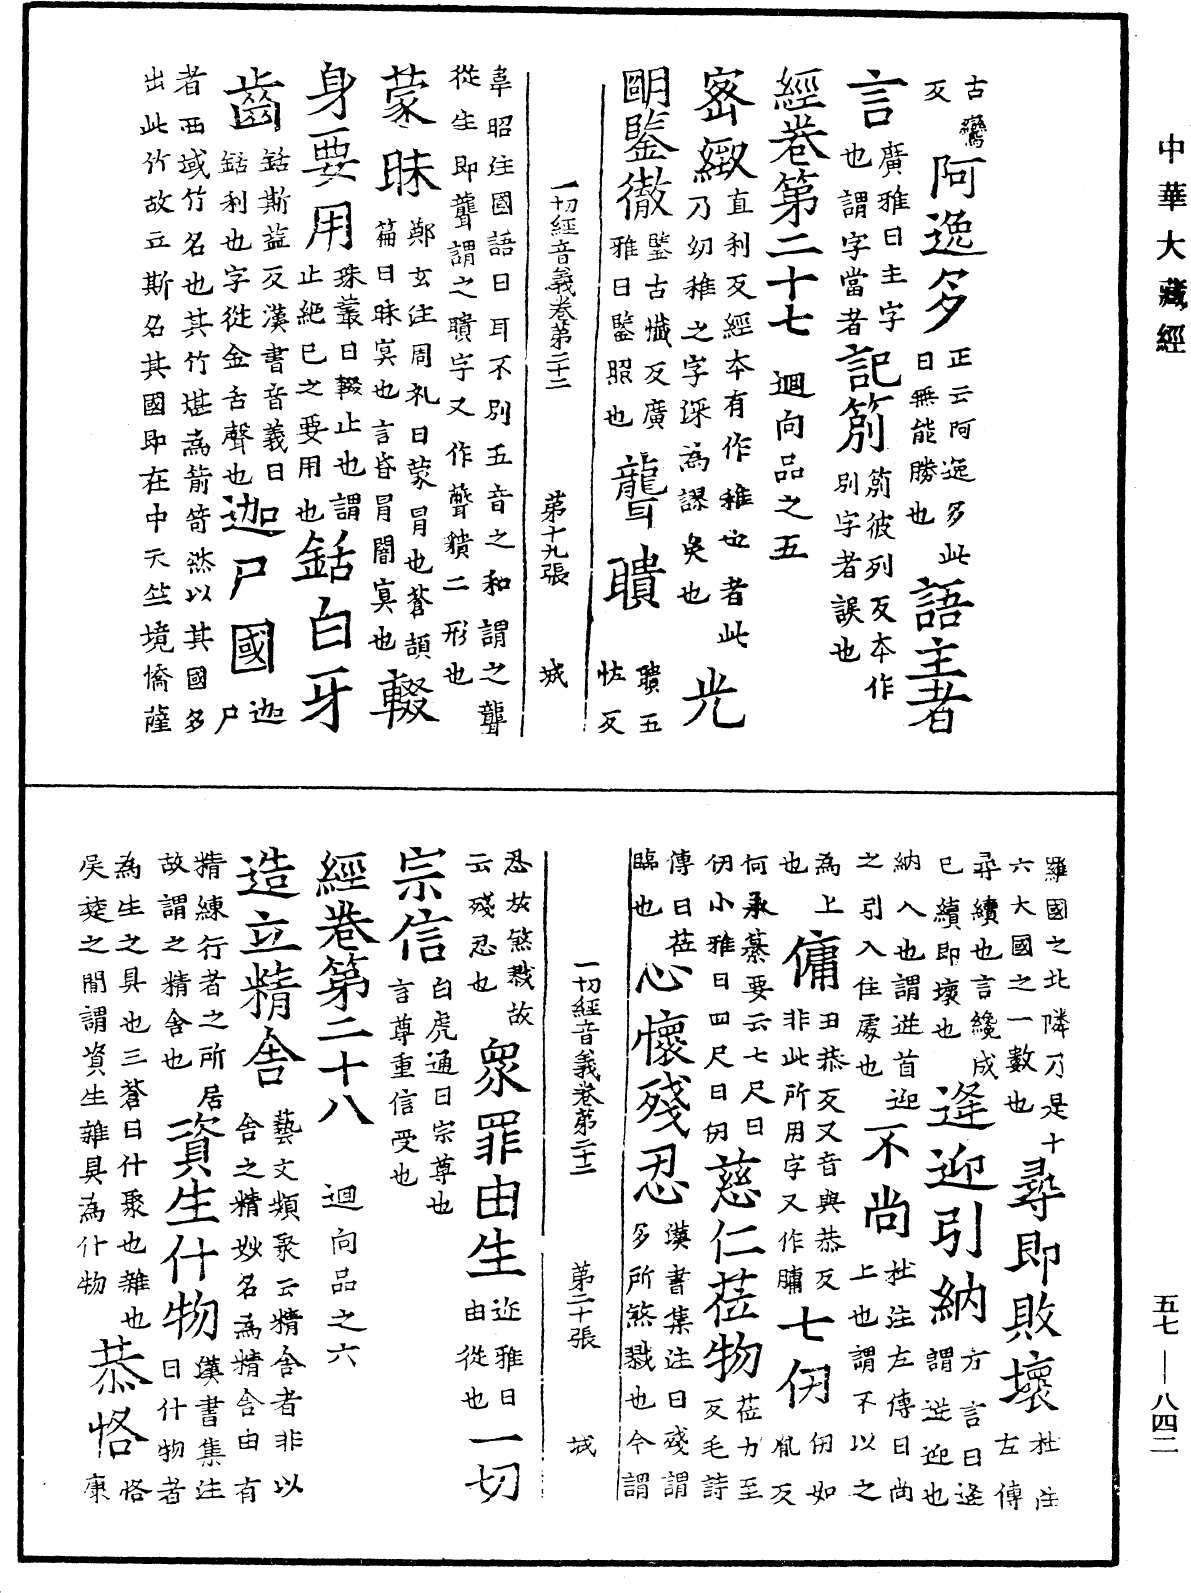 中華大藏經
古鸞
反
阿逸多
正云阿逸多此
曰無能勝也
語主者
言
廣雅曰主字
也謂字當者
記莂
莂彼列反本作
別字者誤也
經卷第二十七 迴向品之五
密緻
直利反經本有作稚也者此
乃幼稚之字深為謬矣也
光
明鑒徹
鑒古懺反廣
雅曰鑒照也
聾聵
聵五
恠反
一切經音義卷第二十二 第十九張 城
韋昭注國語曰耳不別五音之和謂之聾
從生即聾謂之聵字又作聱䫭二形也
蒙昧
鄭玄注周礼曰蒙冒也蒼頡
篇曰昧冥也言昏冒闇冥也
輟
身要用
珠叢曰輟止也謂
止絕已之要用也
銛白牙
齒
銛斯葢反漢書音義曰
銛利也字從金舌聲也
迦尸國
迦
尸
者西域竹名也其竹堪為箭笴然以其國多
出此竹故立斯名其國即在中天竺境憍薩
羅國之北隣乃是十
六大國之一數也
尋即敗壞
杜注
左傳
尋續也言纔成
已續即壞也
逢迎引納
方言曰逢
謂逆迎也
納入也謂逆首迎
之引入住處也
不尚
杜注左傳曰尚
上也謂不以之
為上
也
傭
丑恭反又音與恭反
非此所用字又作𦟛
七仞
仞如
胤反
何承纂要云七尺曰
仞小雅曰四尺曰仞
慈仁莅物
莅力至
反毛詩
傳曰莅
臨也
心懷殘忍
漢書集注曰殘謂
多所煞戮也今謂
一切經音義卷第二十二 第二十張 城
忍於煞戮故
云殘忍也
衆罪由生
迩雅曰
由從也
一切
宗信
白虎通曰宗尊也
言尊重信受也
經卷第二十八 迴向品之六
造立精舍
藝文類聚云精舍者非以
舍之精妙名為精舍由有
精練行者之所居
故謂之精舍也
資生什物
漢書集注
曰什物者
為生之具也三蒼曰什聚也雜也
矦葼之間謂資生雜具為什物
恭恪
恪
康
五七—八四二